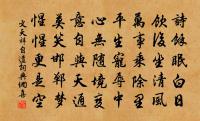 詩餘眠白日
飲後坐清風
萬事乘除里
平生寵辱中
心無隨境變
意自與天通
莫笑邯鄲夢
惺惺更是空
文天祥自遣詞典網書